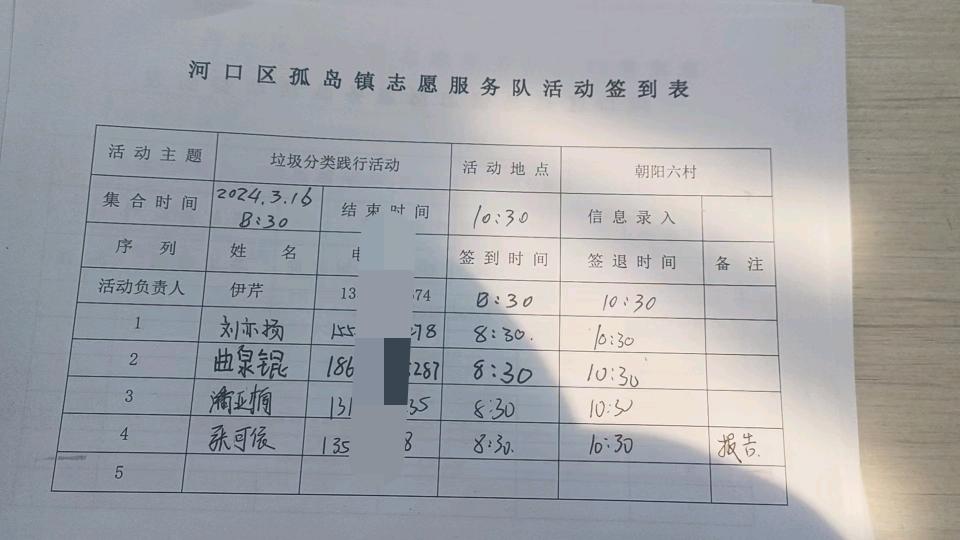 河口区孤岛镇志愿服务队活动签到表
活动主题 垃圾分类践行活动 活动地点 朝阳六村
集合时间 2024.3.16 8:30 结束时间 10:30 信息录入
序列 姓名 电 签到时间 签退时间 备注
活动负责人 伊芹 13 574 8:30 10:30
1 刘亦扬 155 278 8:30. 10:30
2 曲泉锟 186 287 8:30 10:30
3 潘亚楠 131 35 8:30 10:30
4 张可依 135 8 8:30. 10:30 报告
5